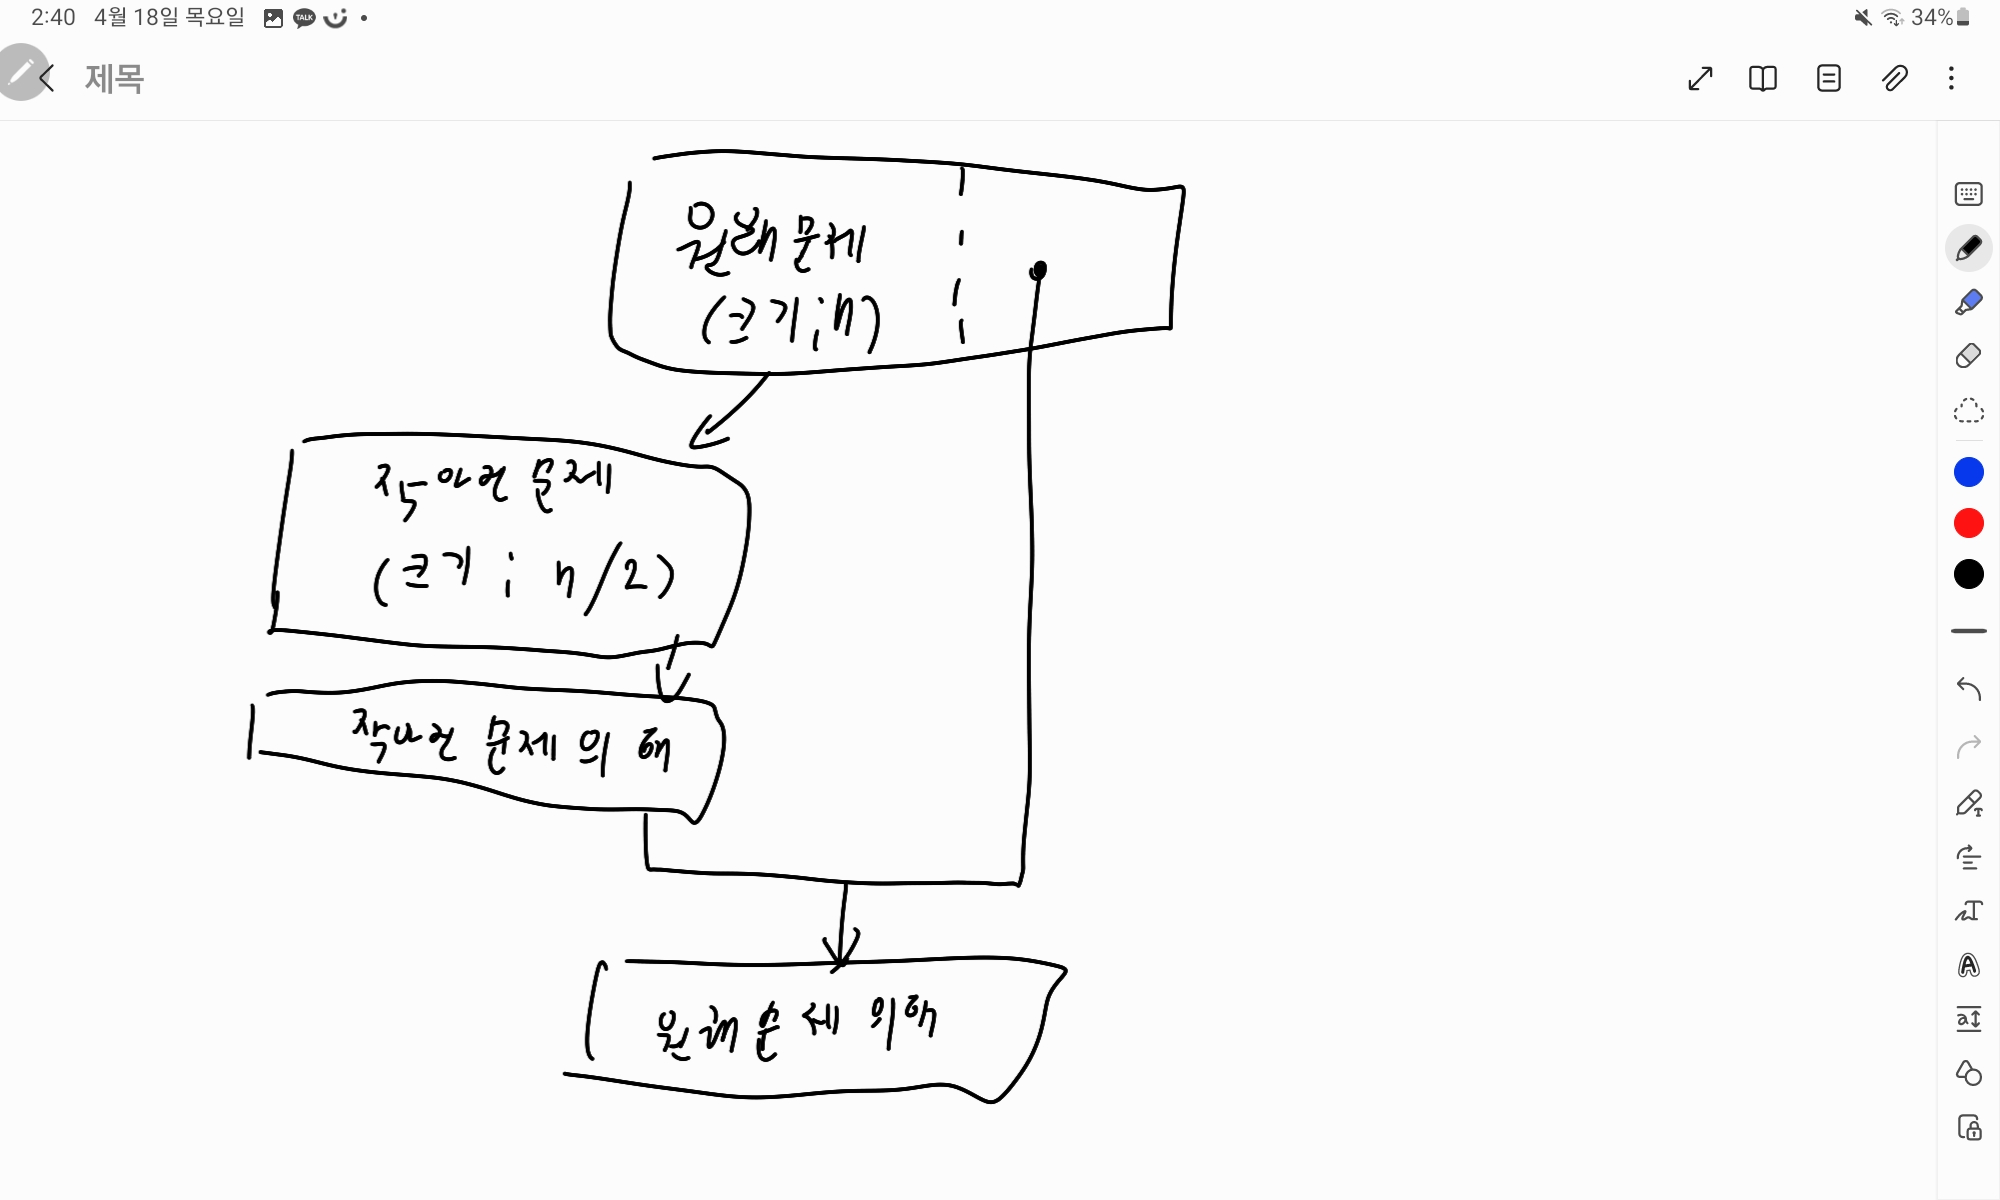 2:40 4월 18일 목요일 TALK 34%
제목
원래 문제
(크기 ; n)
작아진 문제
(크기 ; n/2)
작아진 문제의 해
원래 문제의 해